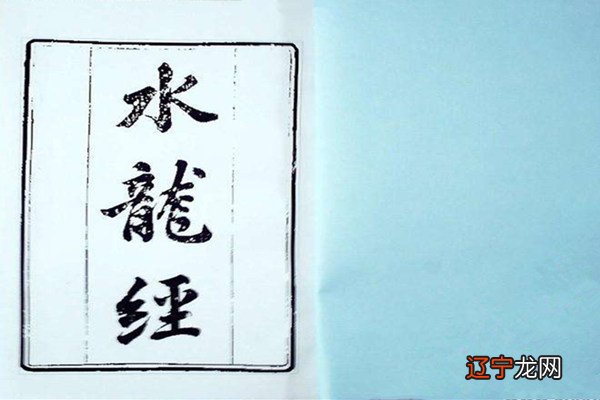 水龍經
辽宁龙网